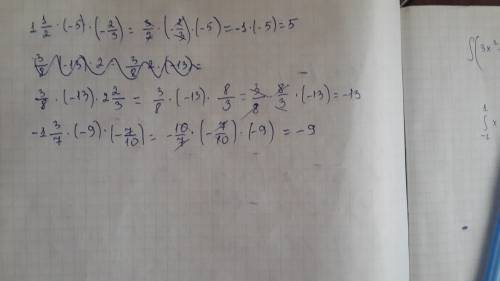 1 1/2 · (-5) · (-2/3) = 3/2 · (-2/3) · (-5) = -1 · (-5) = 5
3/8 · (-13) · 2 = 3/8 · 2 · (-13) =
3/8 · (-13) · 2 2/3 = 3/8 · (-13) · 8/3 = 3/8 · 8/3 · (-13) = -13
-1 3/7 · (-9) · (-7/10) = -10/7 · (-7/10) · (-9) = -9
∫(3x²
∫ x
-1